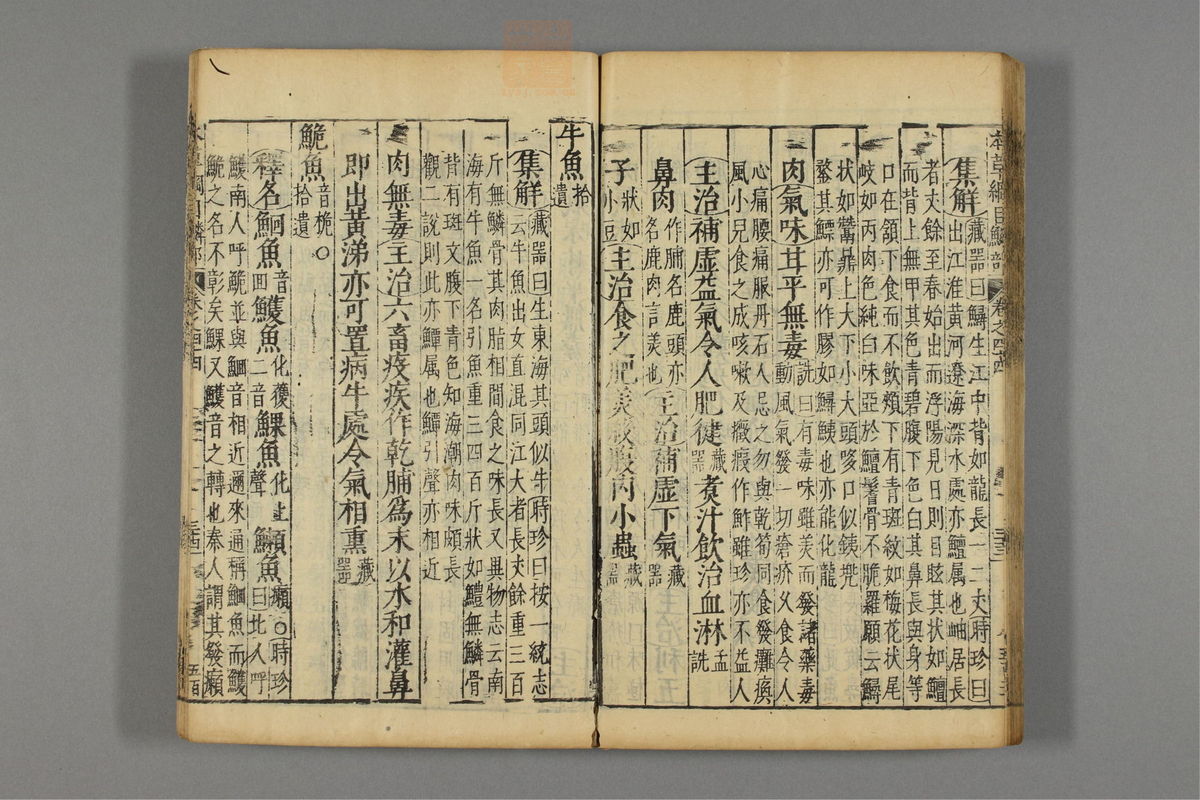 本草綱目鱗部 卷之四十四
集解藏器曰鱘生江中背如龍長一二丈時珍曰
出江淮黃河遼海深水處亦鱣属也岫居長
者丈餘至春始出而浮陽見日則目眩其狀如鱣
而背上無甲其色青碧腹下色白其鼻長與身等
口在頷下食而不飲頰下有青斑紋如梅花狀尾
岐如丙肉色純白味亞於鱣鬐骨不脆羅願云鱘
狀如鬵鼎上大下小大頭哆口似鐵兠
鍪其鰾亦可作膠如鱁鮧也亦能化龍
肉氣味甘平無毒詵曰有毒味雖美而發諸藥毒
動風氣發一切瘡疥久食令人
心痛腰痛服丹石人忌之勿與乾筍同食發癱瘓
風小兒食之成咳嗽及癥瘕作鮓雖珍亦不益人
主治補虛益氣令人肥健藏器煑汁飲治血淋孟詵
鼻肉作脯名鹿頭亦名鹿肉言美也主治補虛下氣藏器
子狀如小豆主治食之肥美殺腹內小蟲藏器
牛魚拾遺
集解藏器曰生東海其頭似牛時珍曰按一統志
云牛魚出女直混同江大者長丈餘重三百
斤無鱗骨其肉脂相間食之味長又異物志云南
海有牛魚一名引魚重三四百斤狀如鱧無鱗骨
背有斑文腹下青色知海潮肉味頗長
觀二說則此亦鱏属也鱏引聲亦相近
肉無毒主治六畜疫疾作乾脯為末以水和灌鼻
即出黃涕亦可置病牛處令氣相熏藏器
鮠魚音桅○拾遺
釋名鮰魚音回鱯魚化獲二音鰥魚化上聲鱯魚癩○時珍曰北人呼
鱯南人呼鮠並與鮰音相近邇來通稱鮰魚而鱯
鮠之名不彰矣鰥又鱯音之轉也秦人謂其發癩